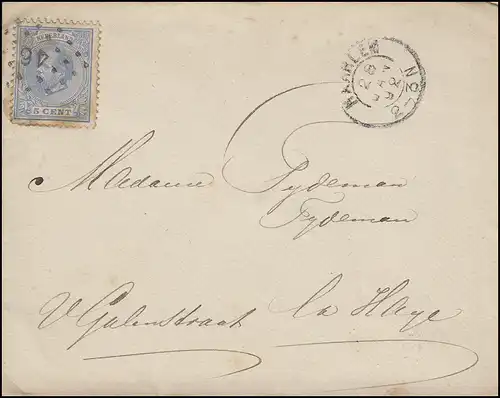 NEDERLAND
46
5 CENT
HAARLEM
Madame Tydeman
Tydeman
V Galenstraat La Haye